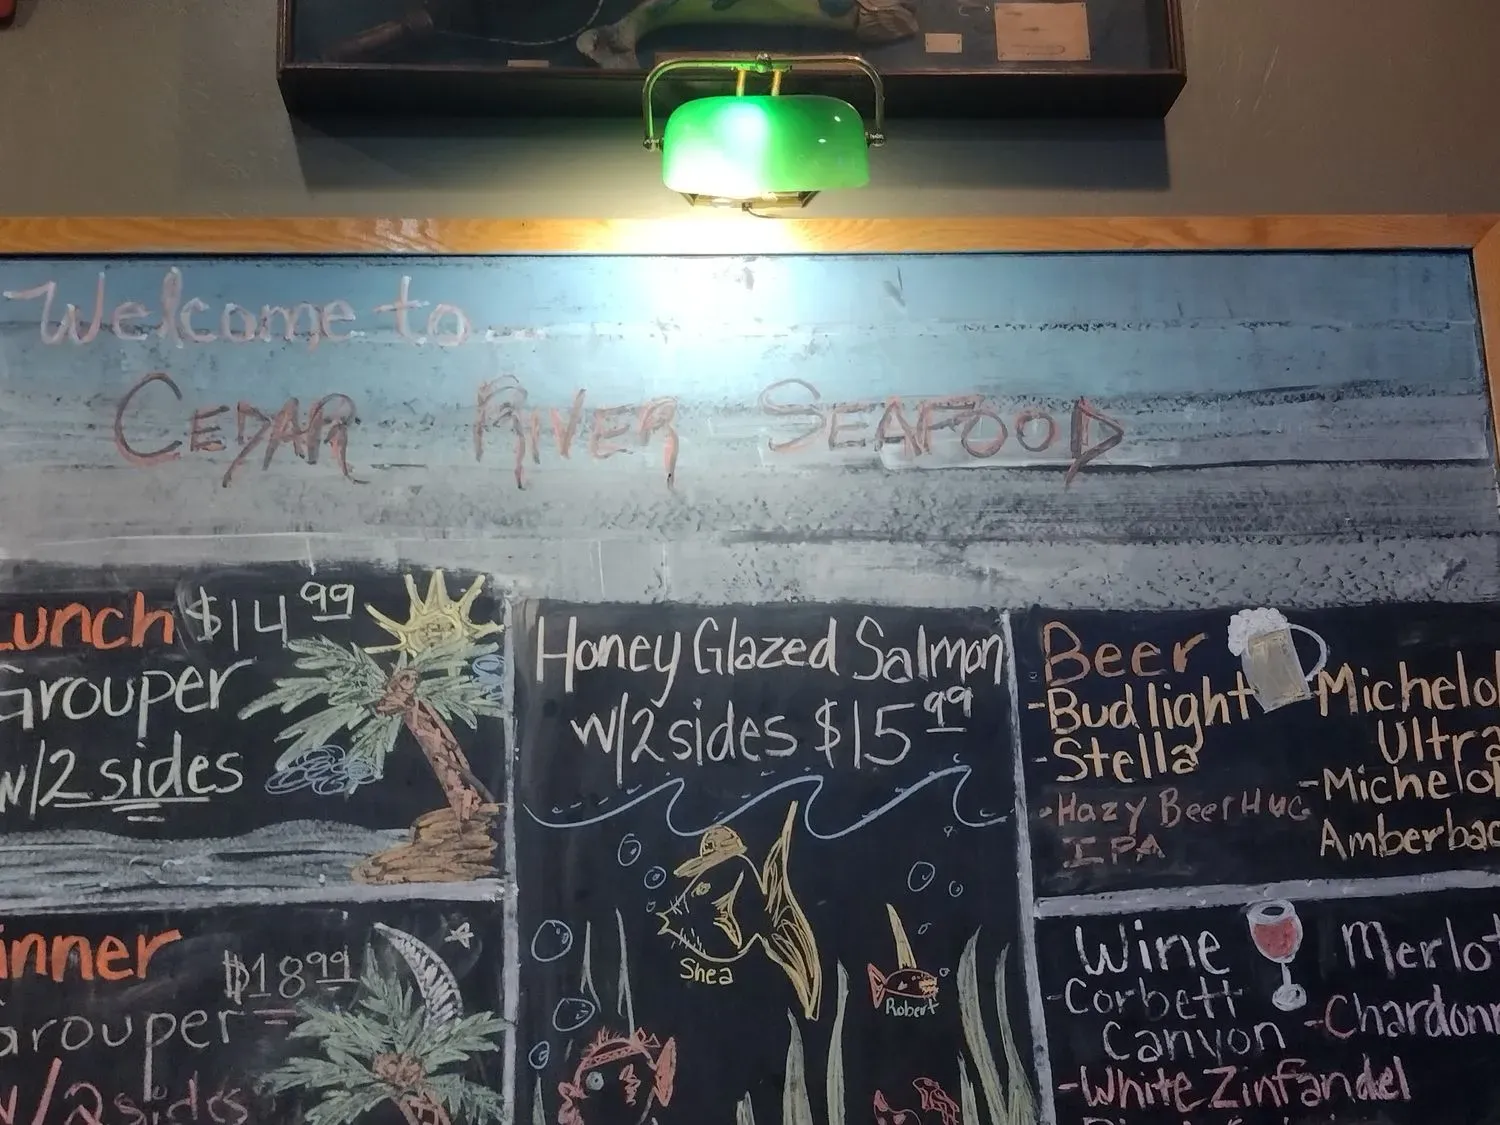 Welcome to...
CEDAR RIVER SEAFOOD
Lunch $14.99
Grouper
w/2 sides
Honey Glazed Salmon
w/2 sides $15.99
Shea
Robert
Beer
- Bud light
- Stella
- Hazy Beer Hug
IPA
Michelo
Ultra
- Michelo
Amberbac
inner $18.99
Grouper
w/2 sides
Wine
- Corbett
Canyon
- White Zinfandel
Merlot
- Chardonn